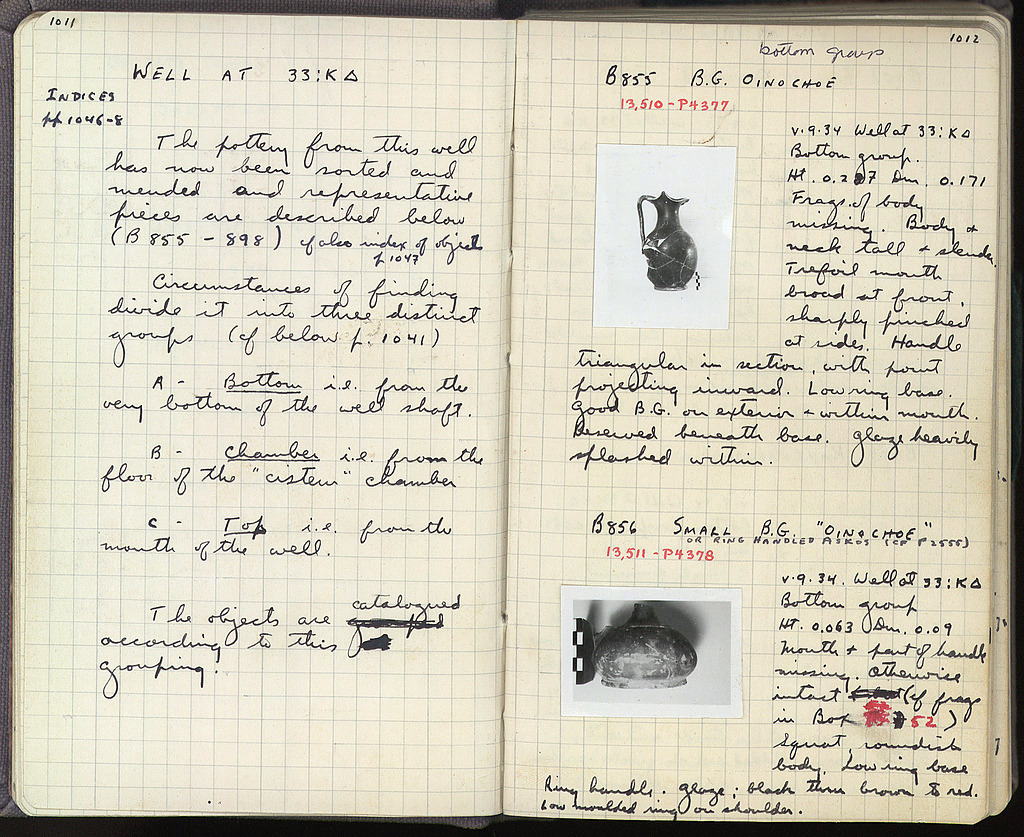 1011
WELL AT 33:KΔ
INDICES
pp 1046-8
The pottery from this well
has now been sorted and
mended and representative
pieces are described below
(B 855 - 898) cf also index of objects
p 1047
Circumstances of finding
divide it into three distinct
groups (cf below p. 1041)
A - Bottom i.e. from the
very bottom of the well shaft.
B - Chamber i.e. from the
floor of the "cistern" chamber
C - Top i.e. from the
mouth of the well.
The objects are catalogued
according to this
grouping!
1012
bottom group
B855 B.G. OINOCHOE
13,510 - P4377
v.9.34 Well at 33:KΔ
Bottom group.
Ht. 0.27 Dm. 0.171
Frags. of body
missing. Body +
neck tall + slender.
Trefoil mouth
broad at front,
sharply pinched
at sides. Handle
triangular in section, with point
projecting inward. Low ring base.
Good B.G. on exterior + within mouth.
Reserved beneath base. Glaze heavily
splashed within.
B856 SMALL B.G. "OINOCHOE"
OR RING HANDLED ASKOS (CF P2555)
13,511 - P4378
v.9.34. Well at 33:KΔ
Bottom group
Ht. 0.063 Dm. 0.09
Mouth + part of handle
missing. Otherwise
intact (cf frags
in Box 52)
Squat, roundish
body. Low ring base
Ring handle. Glaze: black thru brown to red.
Low moulded ring on shoulder.